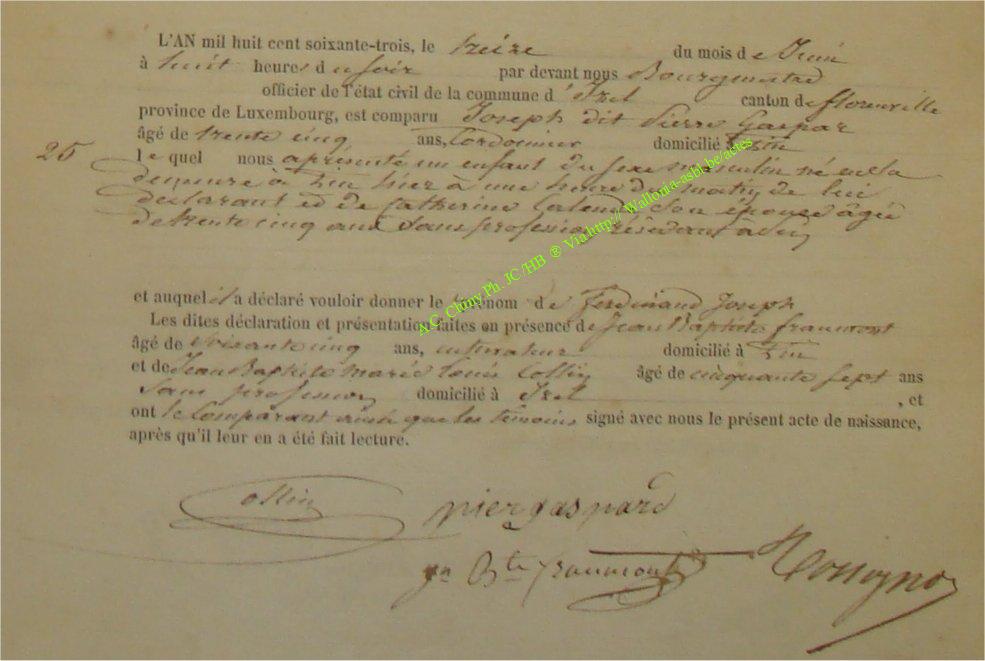 L'AN mil huit cent soixante-trois, le treize du mois de Juin
à huit heures du soir par devant nous Bourgmestre
officier de l'état civil de la commune d'Izel canton de florenville
province de Luxembourg, est comparu Joseph dit Pierre Gaspar
âgé de trente cinq ans, Cordonnier domicilié à
25 le quel nous a présenté un enfant du sexe masculin né en sa
demeure à hier à une heure de de lui
déclarant et de Catherine son épouse âgée
de trente cinq ans sans profession résidant à
et auquel il a déclaré vouloir donner le prénom de Ferdinand Joseph
Les dites déclaration et présentation faites en présence de Jean Baptiste fraumont
âgé de soixante cinq ans, cultivateur domicilié à
et de Jean Baptiste Marie Collin âgé de cinquante sept ans
sans profession domicilié à Izel , et
ont le Comparant ainsi que les témoins signé avec nous le présent acte de naissance,
après qu'il leur en a été fait lecture.
A.C. Chiny Ph. JC /HB ® Via http:// Wallonia-asbl.be/actes
Collin
pier gaspard
jn Bte fraumont